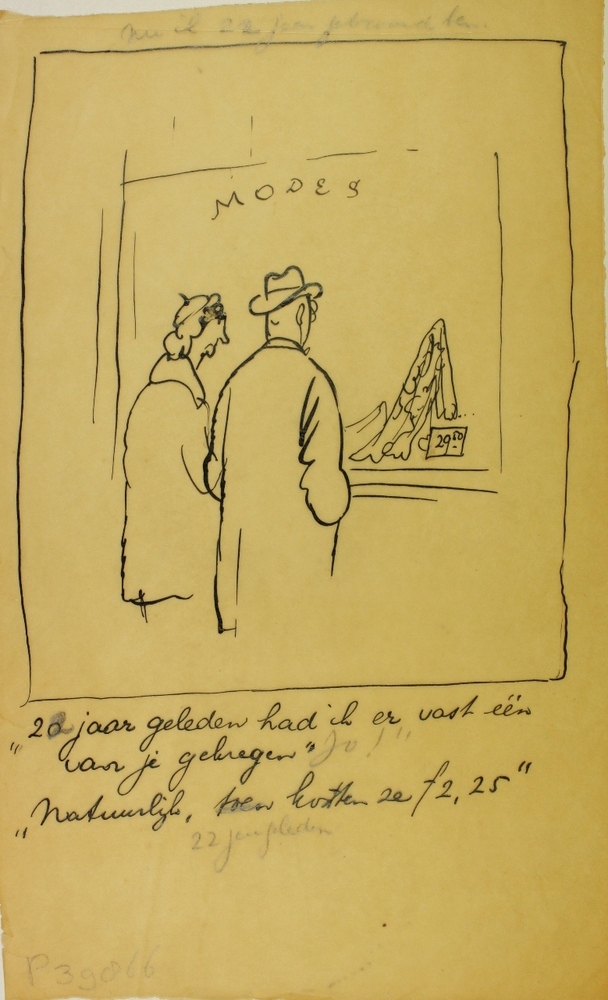 nu ik 22 jaar getrouwd ben.
MODES
29.50
"20 jaar geleden had ik er vast één
van je gekregen" Ja!"
"Natuurlijk, toen kostten ze f 2,25"
22 jaar geleden
P39866